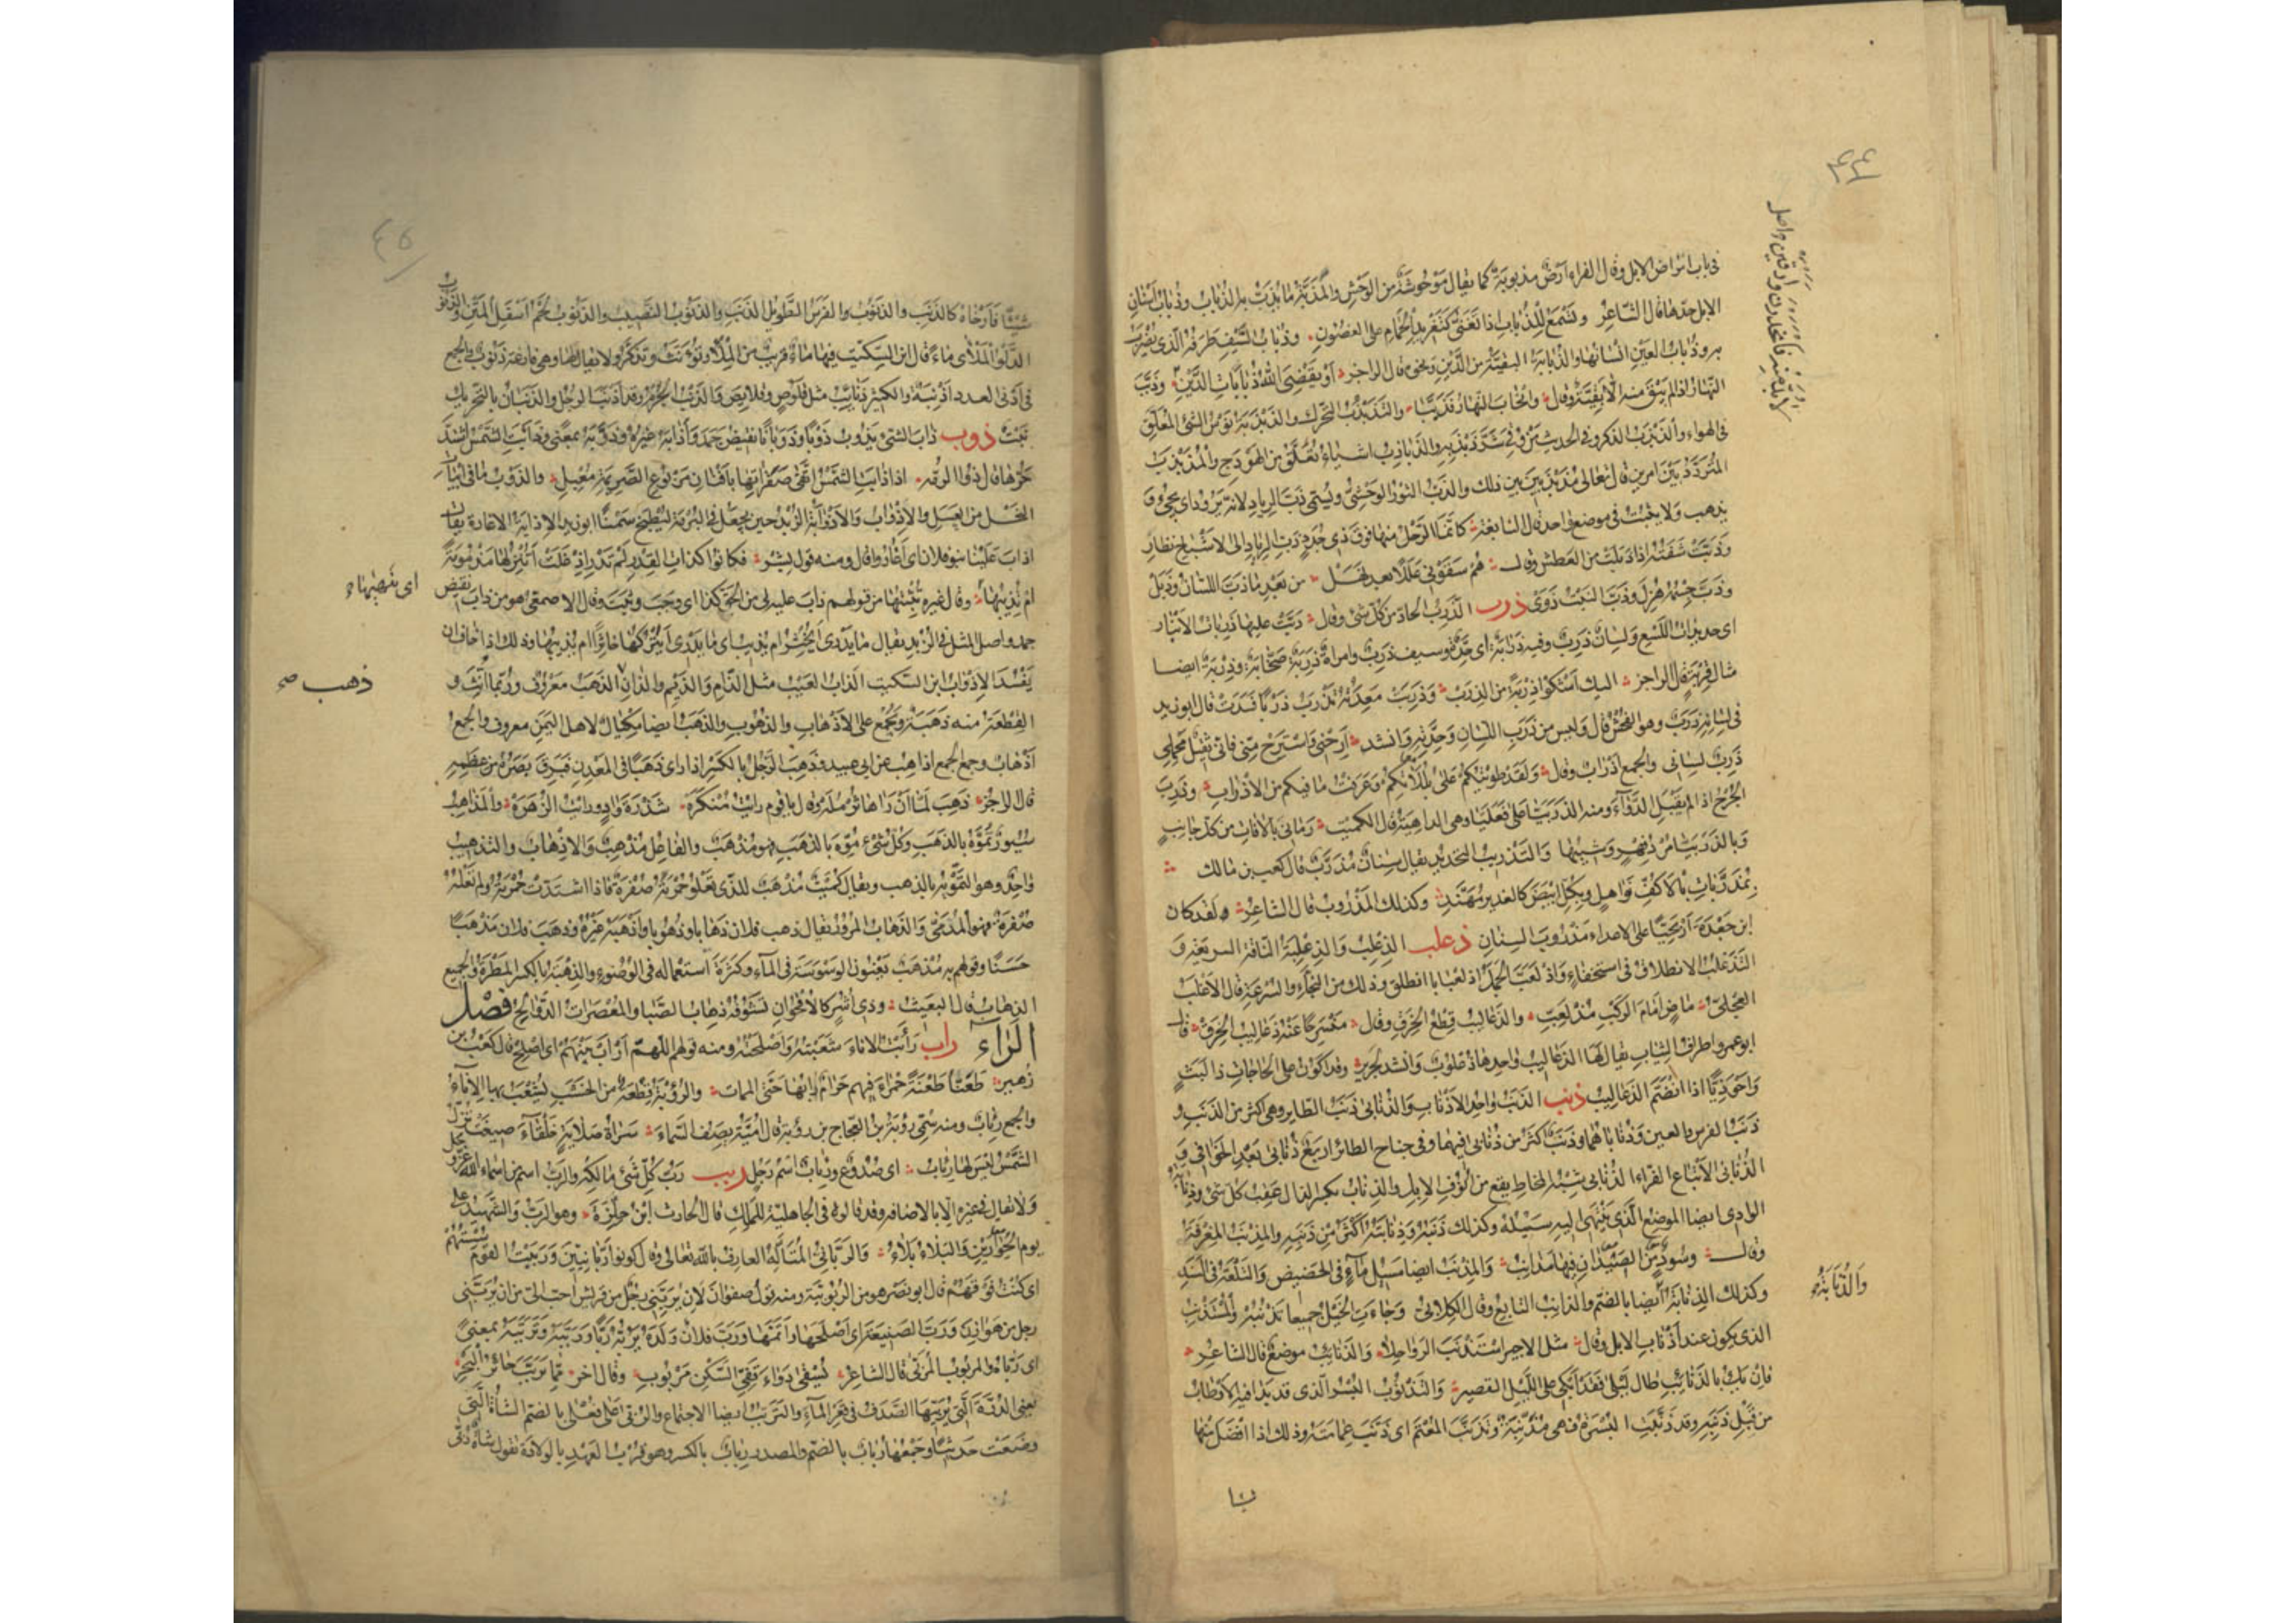 في باب امراض الابل وقال الفراء ارض مذبوبة كما يقال موحوشة من الوحش والمذبة ما يذب به الذباب وذباب اسنان
الابل حدها قال الشاعر وتسمع للذباب اذا تغنى كتغريد الحمام على الغصون وذباب السيف طرفه الذي يضرب
به وذباب العين انسانها والذبابة البقية من الدين ونحوه قال الراجز او يقضي الله ذبابات الدين وذبب
النهار اذا لم يبق منه الا بقية وقال وانجاب النهار فذببا والتذبذب التحرك والذبذبة نوس الشئ المعلق
في الهواء والذبذب الذكر وفي الحديث من وقي شر ذبذبه والذباذب اشياء تعلق من الهودج والمذبذب
المتردد بين امرين قال تعالى مذبذبين بين ذلك والذب الثور الوحشي ويسمى ذب الرياد لانه يرود اى يجئ و
يذهب ولا يثبت في موضع واحد قال النابغة كانما الرحل منها فوق ذي جدد ذب الرياد الى الاشباح نظار
وذبت شفته اذا ذبلت من العطش وقال هم سقوني عللا بعد نهل من بعد ما ذب اللسان وذبل
وذب جسمه هزل وذب النبت ذوى ذرب الذرب الحاد من كل شئ وقال دبت عليها ذربات الانبار
اى حديدات اللسع ولسان ذرب وفيه ذرابة اى حدة وسيف ذرب وامراة ذربة صخابة وذربة ايضا
مثال قربة قال الراجز اليك اشكو ذربة من الذرب وذربت معدته تذرب ذربا فسدت قال ابو زيد
في لسانه ذرب وهو الفحش قال وليس من ذرب اللسان وحدته وانشد ارحني واسترح مني فاني ثقيل محملي
ذرب لساني والجمع اذراب وقال ولقد طويتكم على بللاتكم وعرفت ما فيكم من الاذراب وذرب
الجرح اذا لم يقبل الدواء ومنه الذربيا على فعليا وهي الداهية قال الكميت رماني بالافات من كل جانب
وبالذربيا مرد فهر وشيبها والتذريب التحديد يقال سنان مذرب قال كعب بن مالك
بمذربات بالاكف نواهل وبكل ابيض كالغدير مهند وكذلك المذروب قال الشاعر ولقد كان
ابن جعدة اريحيا على الاعداء مذروب السنان ذعلب الذعلب والذعلبة الناقة السريعة و
التذعلب الانطلاق في استخفاء واذلعب الجمل اذلعبابا انطلق وذلك من النجاء والسرعة قال الاغلب
العجلي ماض امام الركب مذلعب والذعاليب قطع الخرق وقال منسرحا عنه ذعاليب الخرق قال
ابو عمرو اطراف الثياب يقال لها الذعاليب واحدها ذعلوب وانشد لجرير وقد اكون على الحاجات ذا لبث
واحوذيا اذا انضم الذعاليب ذنب الذنب واحد الاذناب والذنابى ذنب الطاير وهي اكثر من الذنب و
ذنب الفرس والعير وذناباهما وذنب اكثر من ذنابى فيهما وفي جناح الطائر اربع ذنابى بعد الخوافي و
الذنابى الاتباع الفراء الذنابى شبه المخاط يقع من انوف الابل والذناب بكسر الذال عقب كل شئ وذنابة
الوادي ايضا الموضع الذي ينتهي اليه سيله وكذلك ذنبه وذنابته اكثر من ذنبه والمذنب المغرفة
وقال وسود من الصيدان فيها مذانب والمذنب ايضا مسيل ماء في الحضيض والتلعة في السند
وكذلك الذنابة ايضا بالضم والذانب التابع وقال الكلابي وجاءت الخيل جميعا تذنبه والمستذنب
الذي يكون عند اذناب الابل وقال مثل الاجير استذنب الرواحلا والذنائب موضع قال الشاعر
فان يك بالذنائب طال ليلي فقد ابكي على الليل القصير والتذنوب البسر الذي قد بدا فيه الارطاب
من قبل ذنبه وقد ذنبت البسرة فهي مذنبة وتذنب المعتم اى ذنب عمامته وذلك اذا افضل منها
والذنابة
شيئا فارخاه كالذنب والذنوب الفرس الطويل الذنب والذنوب النصيب والذنوب لحم اسفل المتن والذنوب
الدلو الملأى ماء قال ابن السكيت فيها ماء قريب من الملء تؤنث وتذكر ولا يقال لها وهي فارغة ذنوب والجمع
في ادنى العدد اذنبة والكثير ذنائب مثل قلوص وقلايص والذنب الجرم وقد اذنب الرجل والذنبان بالتحريك
نبت ذوب ذاب الشئ يذوب ذوبا وذوبانا نقيض جمد واذابه غيره وذوبه بمعنى وذابت الشمس اشتد
حرها قال ذو الرمة اذا ذابت الشمس اتقى صقراتها بافنان مربوع الصريمة معبل والذوب ما في ابيات
النحل من العسل والاذواب والاذوابة الزبد حين يجعل في البرمة ليطبخ سمنا ابو زيد الاذابة الاغارة يقال
اذاب علينا بنو فلان اى اغاروا قال ومنه قول بشر فكانوا كذات القدر لم تدر اذ غلت اتنزلها مذمومة
ام تذيبها وقال غيره تثبتها من قولهم ذاب عليه لي من الحق كذا اى وجب وثبت وقال الاصمعي هو من ذاب نقيض
جمد واصل المثل في الزبد يقال ما يدري ايخثر ام يذيب اى ما يدري ايتركها خاثرا ام يذيبها وذلك اذا خاف ان
يفسد الاذواب ابن السكيت الذاب العيب مثل الذام والذيم والذان الذهب معروف وربما انث و
القطعة منه ذهبة ويجمع على الاذهاب والذهوب والذهب ايضا مكيال لاهل اليمن معروف والجمع
اذهاب وجمع الجمع اذاهب عن ابي عبيد وذهب الرجل بالكسر اذا راى ذهبا في المعدن فبرق بصره من عظمه
قال الراجز ذهب لما ان راها ثرمله وقال يا قوم رايت منكره شذرة واد ورايت الزهره والمذاهب
سيور تموه بالذهب وكل شئ موه بالذهب فهو مذهب والفاعل مذهب والاذهاب والتذهيب
واحد وهو التمويه بالذهب ويقال كميت مذهب للذي تعلو حمرته صفرة فاذا اشتدت حمرته ولم تعله
صفرة فهو المدمى والذهاب المرور يقال ذهب فلان ذهابا وذهوبا واذهبه غيره وذهب فلان مذهبا
حسنا وقولهم به مذهب يعنون الوسوسة في الماء وكثرة استعماله في الوضوء والذهبة بالكسر المطرة والجميع
الذهاب قال البعيث وذي اشر كالاقحوان تشوفه ذهاب الصبا والمعصرات الدوالح فصل
الراء راب رأبت الاناء شعبته واصلحته ومنه قولهم اللهم ارأب بينهم اى اصلح قال كعب بن
زهير طعنا طعنة حمراء فيهم حرام رأبها حتى الممات والرؤبة قطعة من الخشب يشعب بها الاناء
والجمع رئاب ومنه سمي رؤبة بن العجاج بن رؤبة قال امية يصف السماء سراة صلاية خلقاء صيغت تزل
الشمس ليس لها رئاب اى صدوع ورئاب اسم رجل ربب رب كل شئ مالكه والرب اسم من اسماء الله عز وجل
ولا يقال في غيره الا بالاضافة وقد قالوه في الجاهلية للملك قال الحارث ابن حلزة وهو الرب والشهيد على
يوم الحوارين والبلاء بلاء والرباني المتاله العارف بالله تعالى وقال كونوا ربانيين ورببت القوم سستهم
اى كنت فوقهم قال ابو نصر هو من الربوبية ومنه قول صفوان لان يربني رجل من قريش احب الي من ان يربني
رجل من هوازن ورب الضيعة اى اصلحها واتمها ورب فلان ولده يربه ربا ورببه وترببه بمعنى
اى رباه والمربوب المربى قال الشاعر يسقى دواء قفي السكن مربوب وقال اخر مما تربب حائر البحر
يعني الدرة التي يربيها الصدف في قعر الماء والترب ايضا الاجتماع والربى على فعلى بالضم الشاة التي
وضعت حديثا وجمعها رباب بالضم والمصدر رباب بالكسر وهو قرب العهد بالولادة تقول شاة ربى
ذهب صح